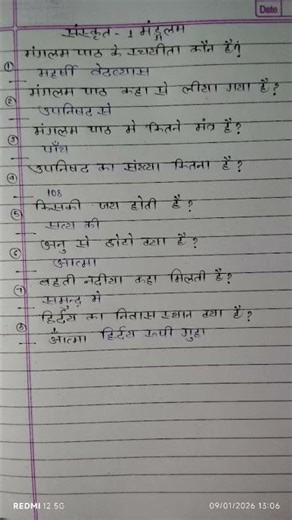 Date
संस्कृत - 1 मंङ्गलम
① मंगलम पाठ के रचयीता कौन है?
महर्षी वेदव्यास
② मंगलम पाठ कहा से लीया गया है?
उपनिषद से
③ मंगलम पाठ मे कितने मंत्र है?
पाँच
④ उपनिषद का संख्या कितना है?
108
⑤ किसकी जय होती है?
सत्य की
⑥ अनु से छोटा क्या है?
आत्मा
⑦ बहती नदीया कहा मिलती है?
समुन्द्र मे
⑧ हिर्दय का निवास स्थान क्या है?
आत्मा हिर्दय रूपी गुहा
REDMI 12 5G
09/01/2026 13:06